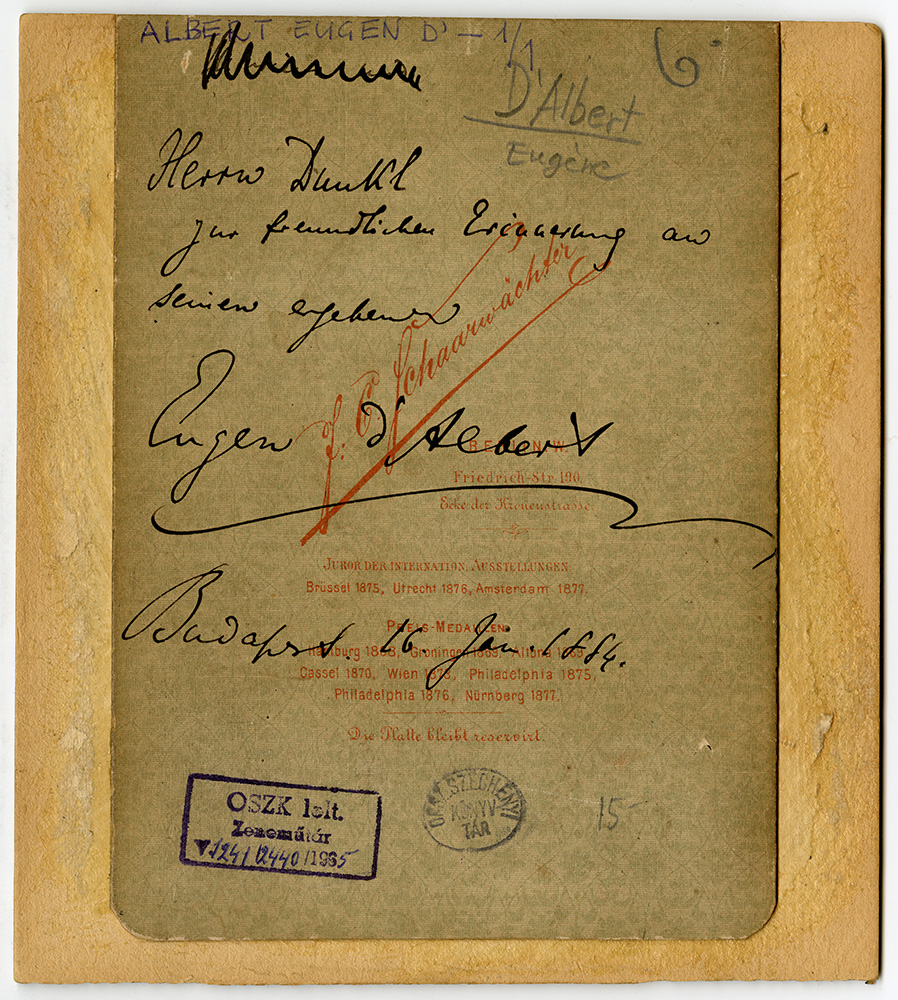 ALBERT EUGEN D' - 1/1
D'Albert
Eugène
Herrn Dunkl
zur freundlichen Erinnerung an
seinen ergebenen
J. C. Schaarwächter
Eugen d'Albert
BERLIN W.
Friedrich-Str. 190.
Ecke der Kronenstrasse.
JUROR DER INTERNATION. AUSSTELLUNGEN
Brüssel 1875, Utrecht 1876, Amsterdam 1877.
Budapest. 16. Jän. 1884.
PREIS-MEDAILLEN
Hamburg 1868, Groningen 1869, Altona 1869,
Cassel 1870, Wien 1873, Philadelphia 1875,
Philadelphia 1876, Nürnberg 1877.
Die Platte bleibt reservirt.
OSZK lelt.
Zeneműtár
V.124/12440/1965
ORSZ. SZÉCHÉNYI
KÖNYV
TÁR
15-